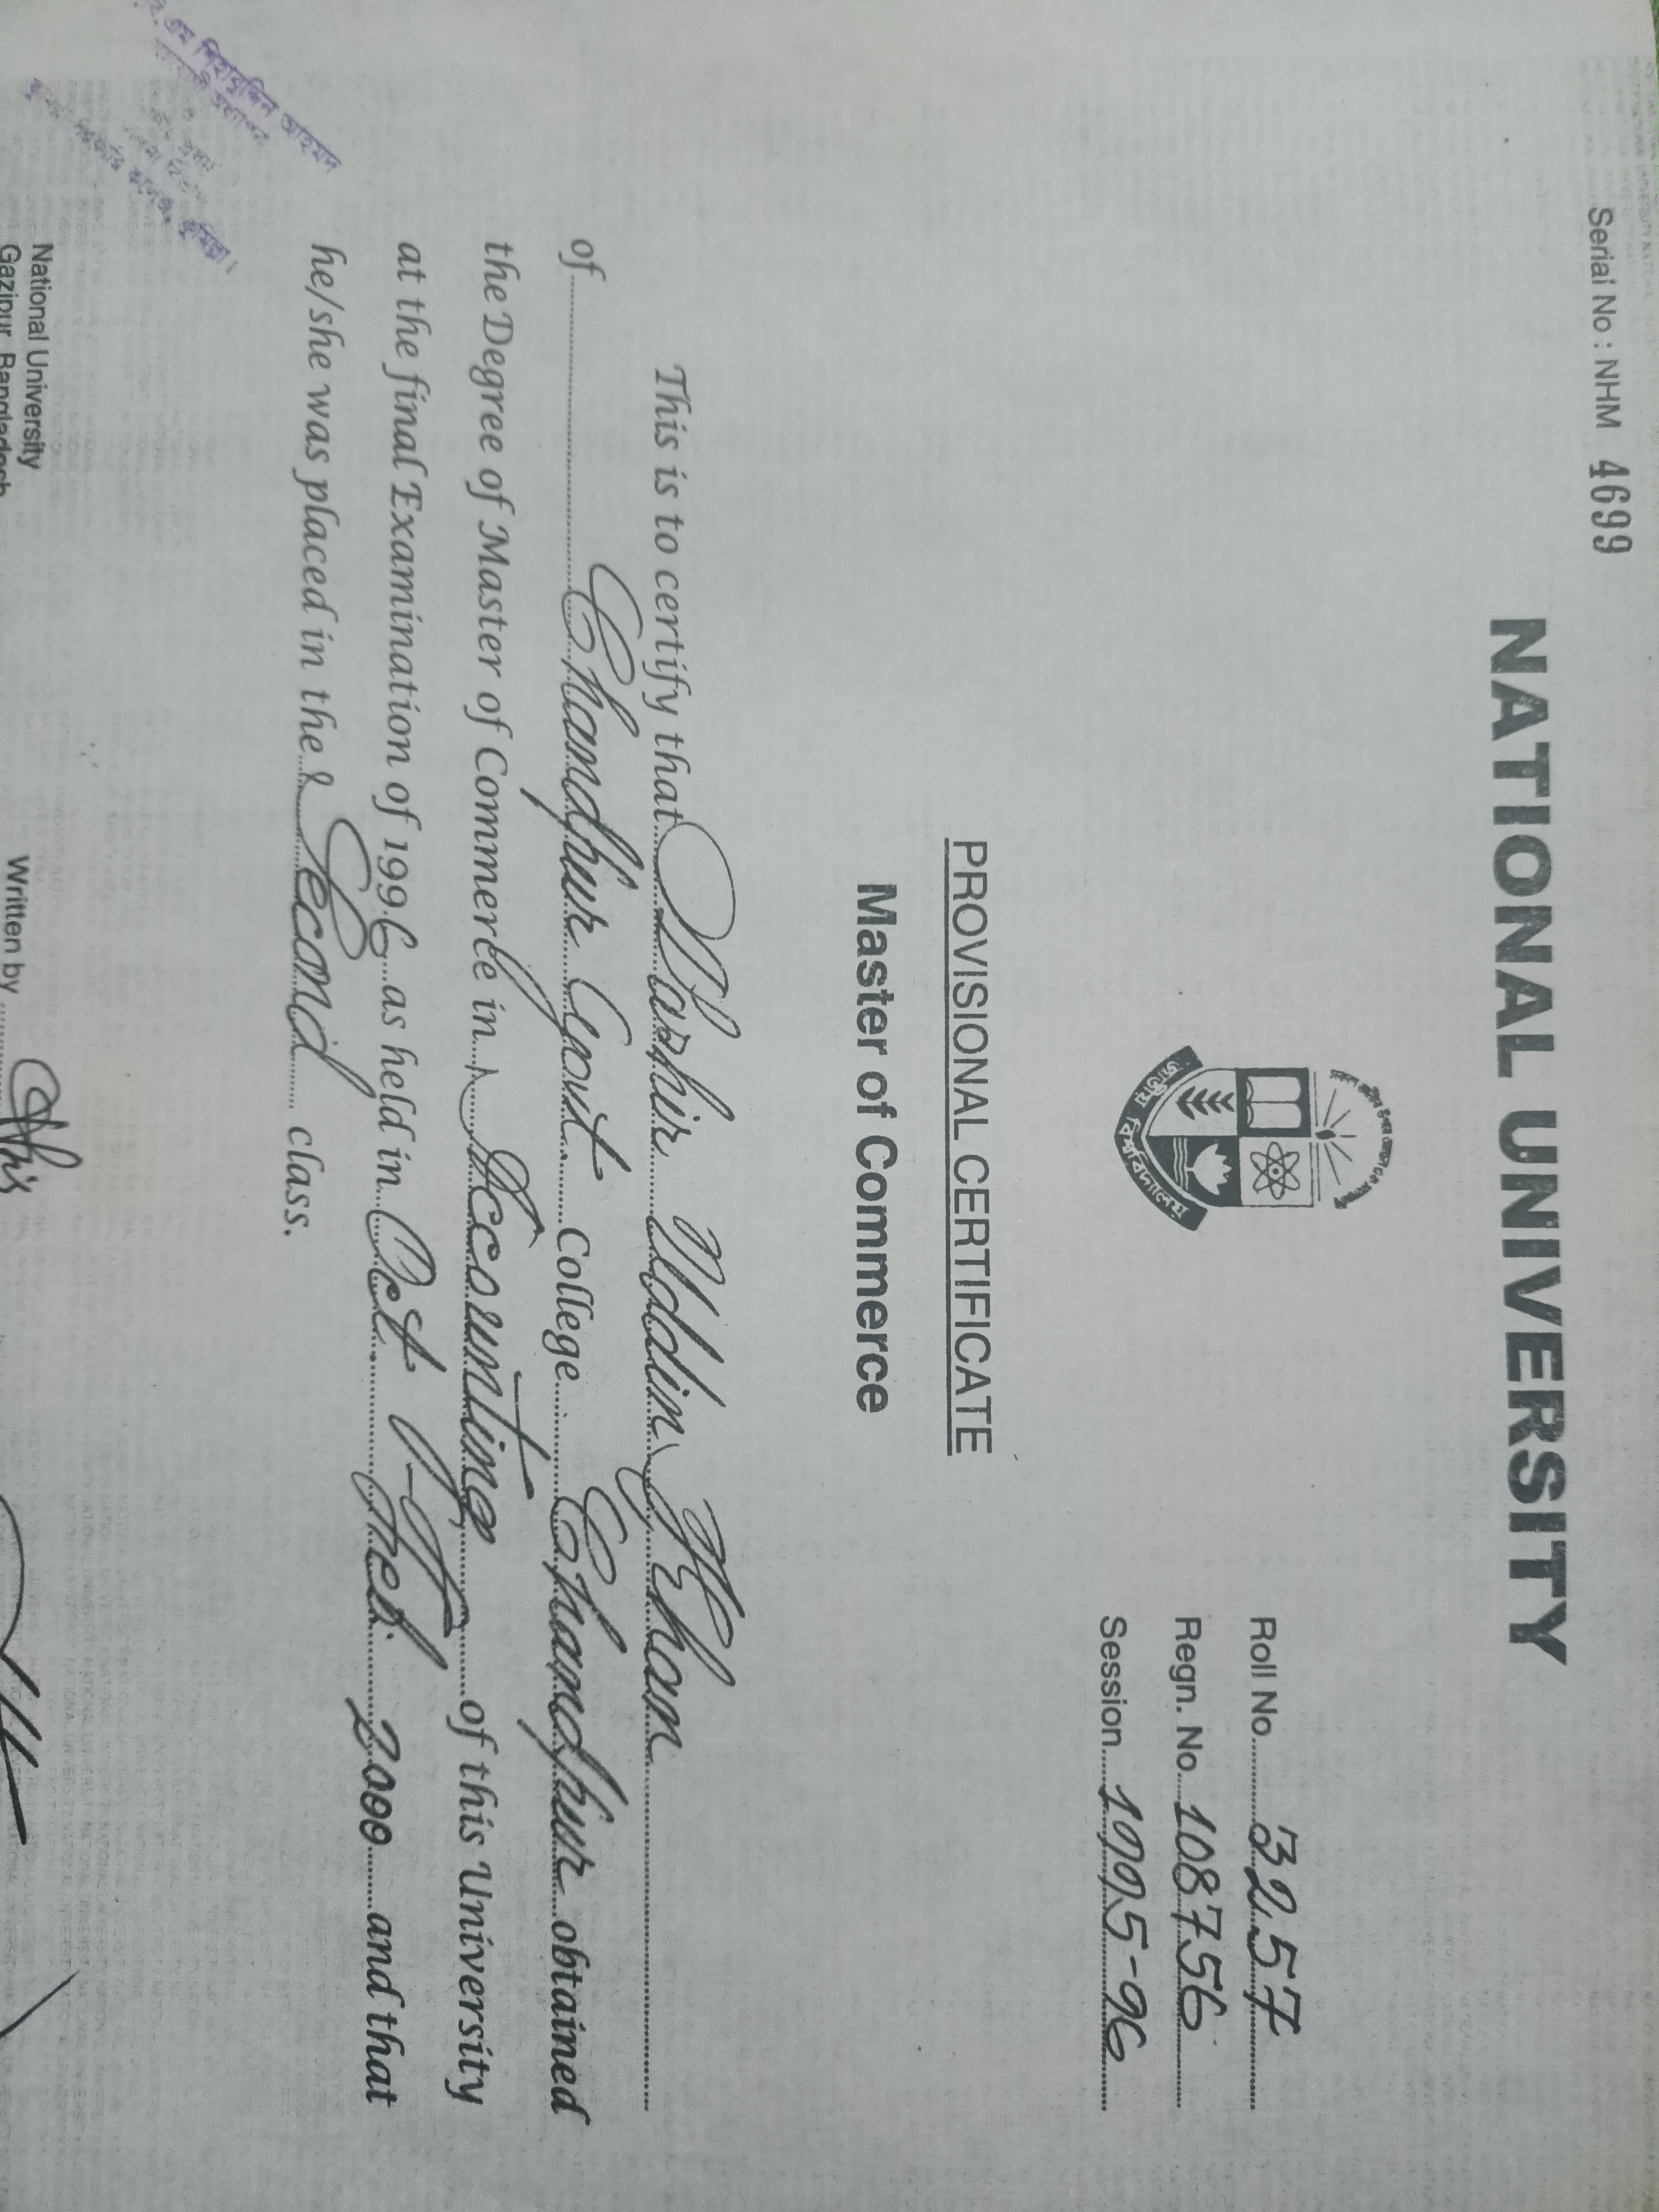 Serial No : NHM 4699
NATIONAL UNIVERSITY
জাতীয় বিশ্ববিদ্যালয়
Roll No. 3257
Regn. No. 108756
Session 1995-96
PROVISIONAL CERTIFICATE
Master of Commerce
This is to certify that Uddin Khan
of Chandpur Govt. College Chandpur obtained
the Degree of Master of Commerce in Accounting of this University
at the final Examination of 1996 as held in Oct - Feb. 2000 and that
he/she was placed in the Second class.
শিহাবুদ্দিন আহমদ
National University
Gazipur, Bangladesh
Written by